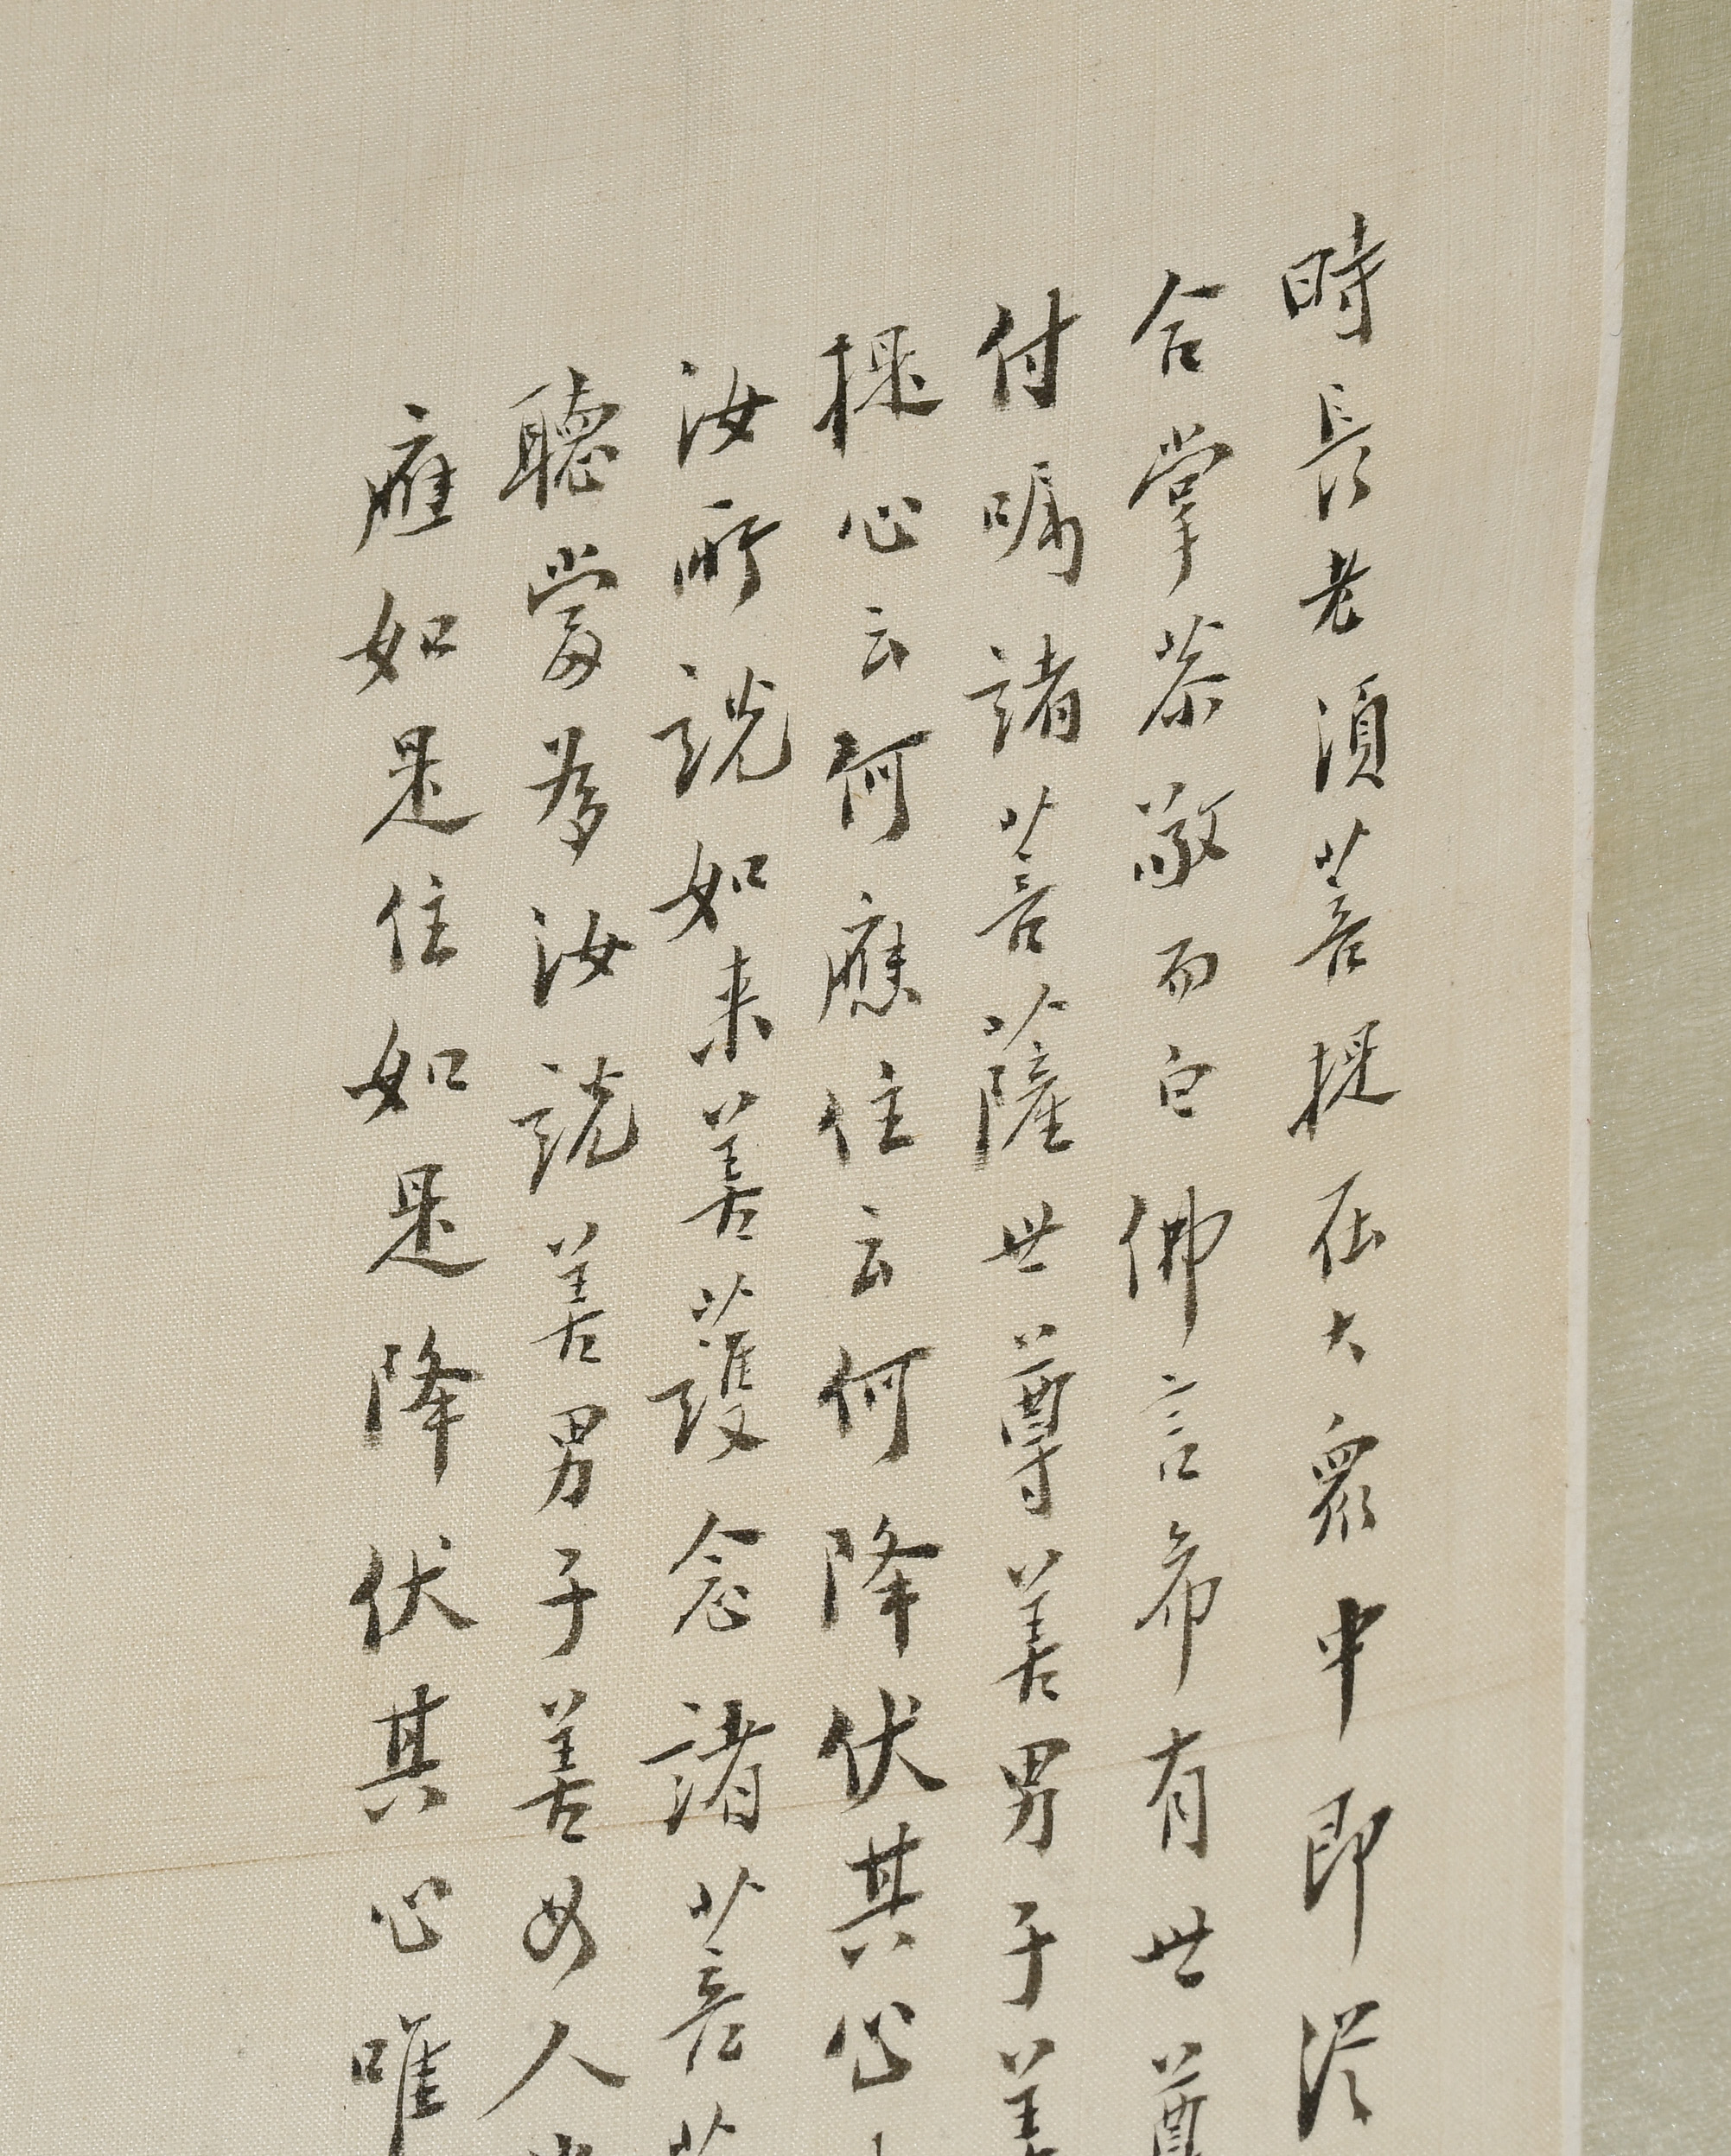 時長老須菩提在大衆中即從
合掌恭敬而白佛言希有世尊
付嘱諸菩薩世尊善男子善
提心云何應住云何降伏其心
汝所説如来善護念諸菩
聽當為汝説善男子善女人
應如是住如是降伏其心唯